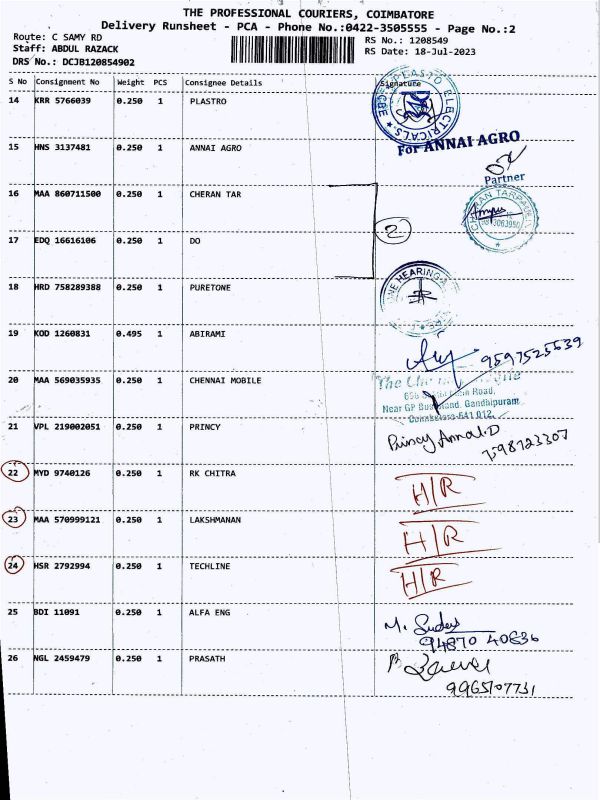 THE PROFESSIONAL COURIERS, COIMBATORE
Delivery Runsheet - PCA - Phone No.:0422-3505555 - Page No.:2
Route: C SAMY RD RS No.: 1208549
Staff: ABDUL RAZACK RS Date: 18-Jul-2023
DRS No.: DCJB120854902
S No Consignment No Weight PCS Consignee Details Signature
14 KRR 5766039 0.250 1 PLASTRO
PLASTO ELECTRICALS CBE
15 HNS 3137481 0.250 1 ANNAI AGRO For ANNAI AGRO
Partner
16 MAA 860711500 0.250 1 CHERAN TAR
2
17 EDQ 16616106 0.250 1 DO
18 HRD 758289388 0.250 1 PURETONE
HEARING
19 KOD 1260831 0.495 1 ABIRAMI
9597525639
20 MAA 569035935 0.250 1 CHENNAI MOBILE The
Road,
Near GP Gandhipuram
Coimbatore-641 012.
21 VPL 219002051 0.250 1 PRINCY Princy Annal.D
22 MYD 9740126 0.250 1 RK CHITRA H/R
23 MAA 570999121 0.250 1 LAKSHMANAN H/R
24 HSR 2792994 0.250 1 TECHLINE H/R
25 BDI 11091 0.250 1 ALFA ENG M.
94870 40636
26 NGL 2459479 0.250 1 PRASATH
9965107731